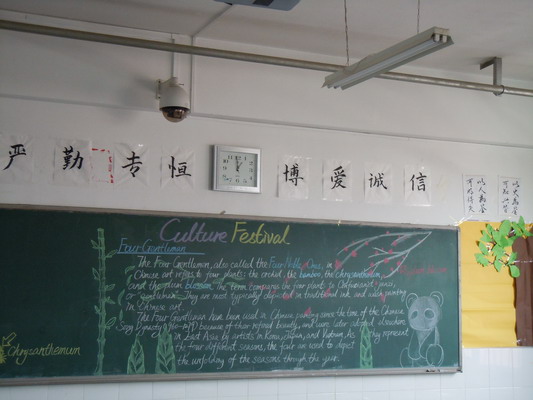 严 勤 专 恒
博 爱 诚 信
以人为鉴
可明得失
Culture Festival
Four Gentlemen
The Four Gentlemen, also called the Four Noble Ones, in
Chinese art refers to four plants: the orchid, the bamboo, the chrysanthemum
and the plum blossom. The term compares the four plants to Confucianist junzi,
or "gentlemen". They are most typically depicted in traditional ink and wash painting
in Chinese art.
The Four Gentlemen have been used in Chinese painting since the time of the Chinese
Song Dynasty because of their refined beauty, and were later adopted elsewhere
in East Asia by artists in Korea, Japan, and Vietnam. As they represent
the four different seasons, the four are used to depict
the unfolding of the seasons through the year.
Chrysanthemum